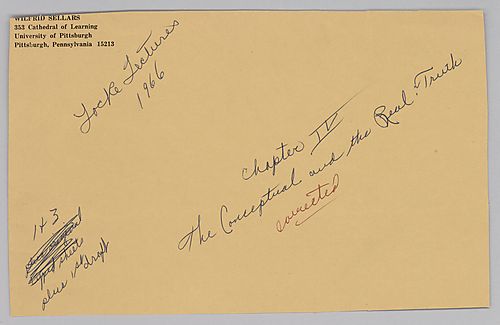 WILFRID SELLARS
353 Cathedral of Learning
University of Pittsburgh
Pittsburgh, Pennsylvania 15213
Locke Lectures
1966
Chapter IV
The Conceptual and the Real: Truth
corrected
1 + 3
plus 1st draft